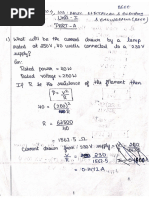 BEEE
UNIT-I
PART-A
1) What will be the current drawn by a lamp
rated at 250V, 40 watts connected to a 230V
supply?
Rated power = 40W
Rated voltage = 250V
If R is the resistance of the filament then
P = V²/R
40 = (250)²/R
R = 62500/40
= 1562.5 Ω
Current drawn from 230V supply = 230/R
= 230/1562.5
= 0.1472 A